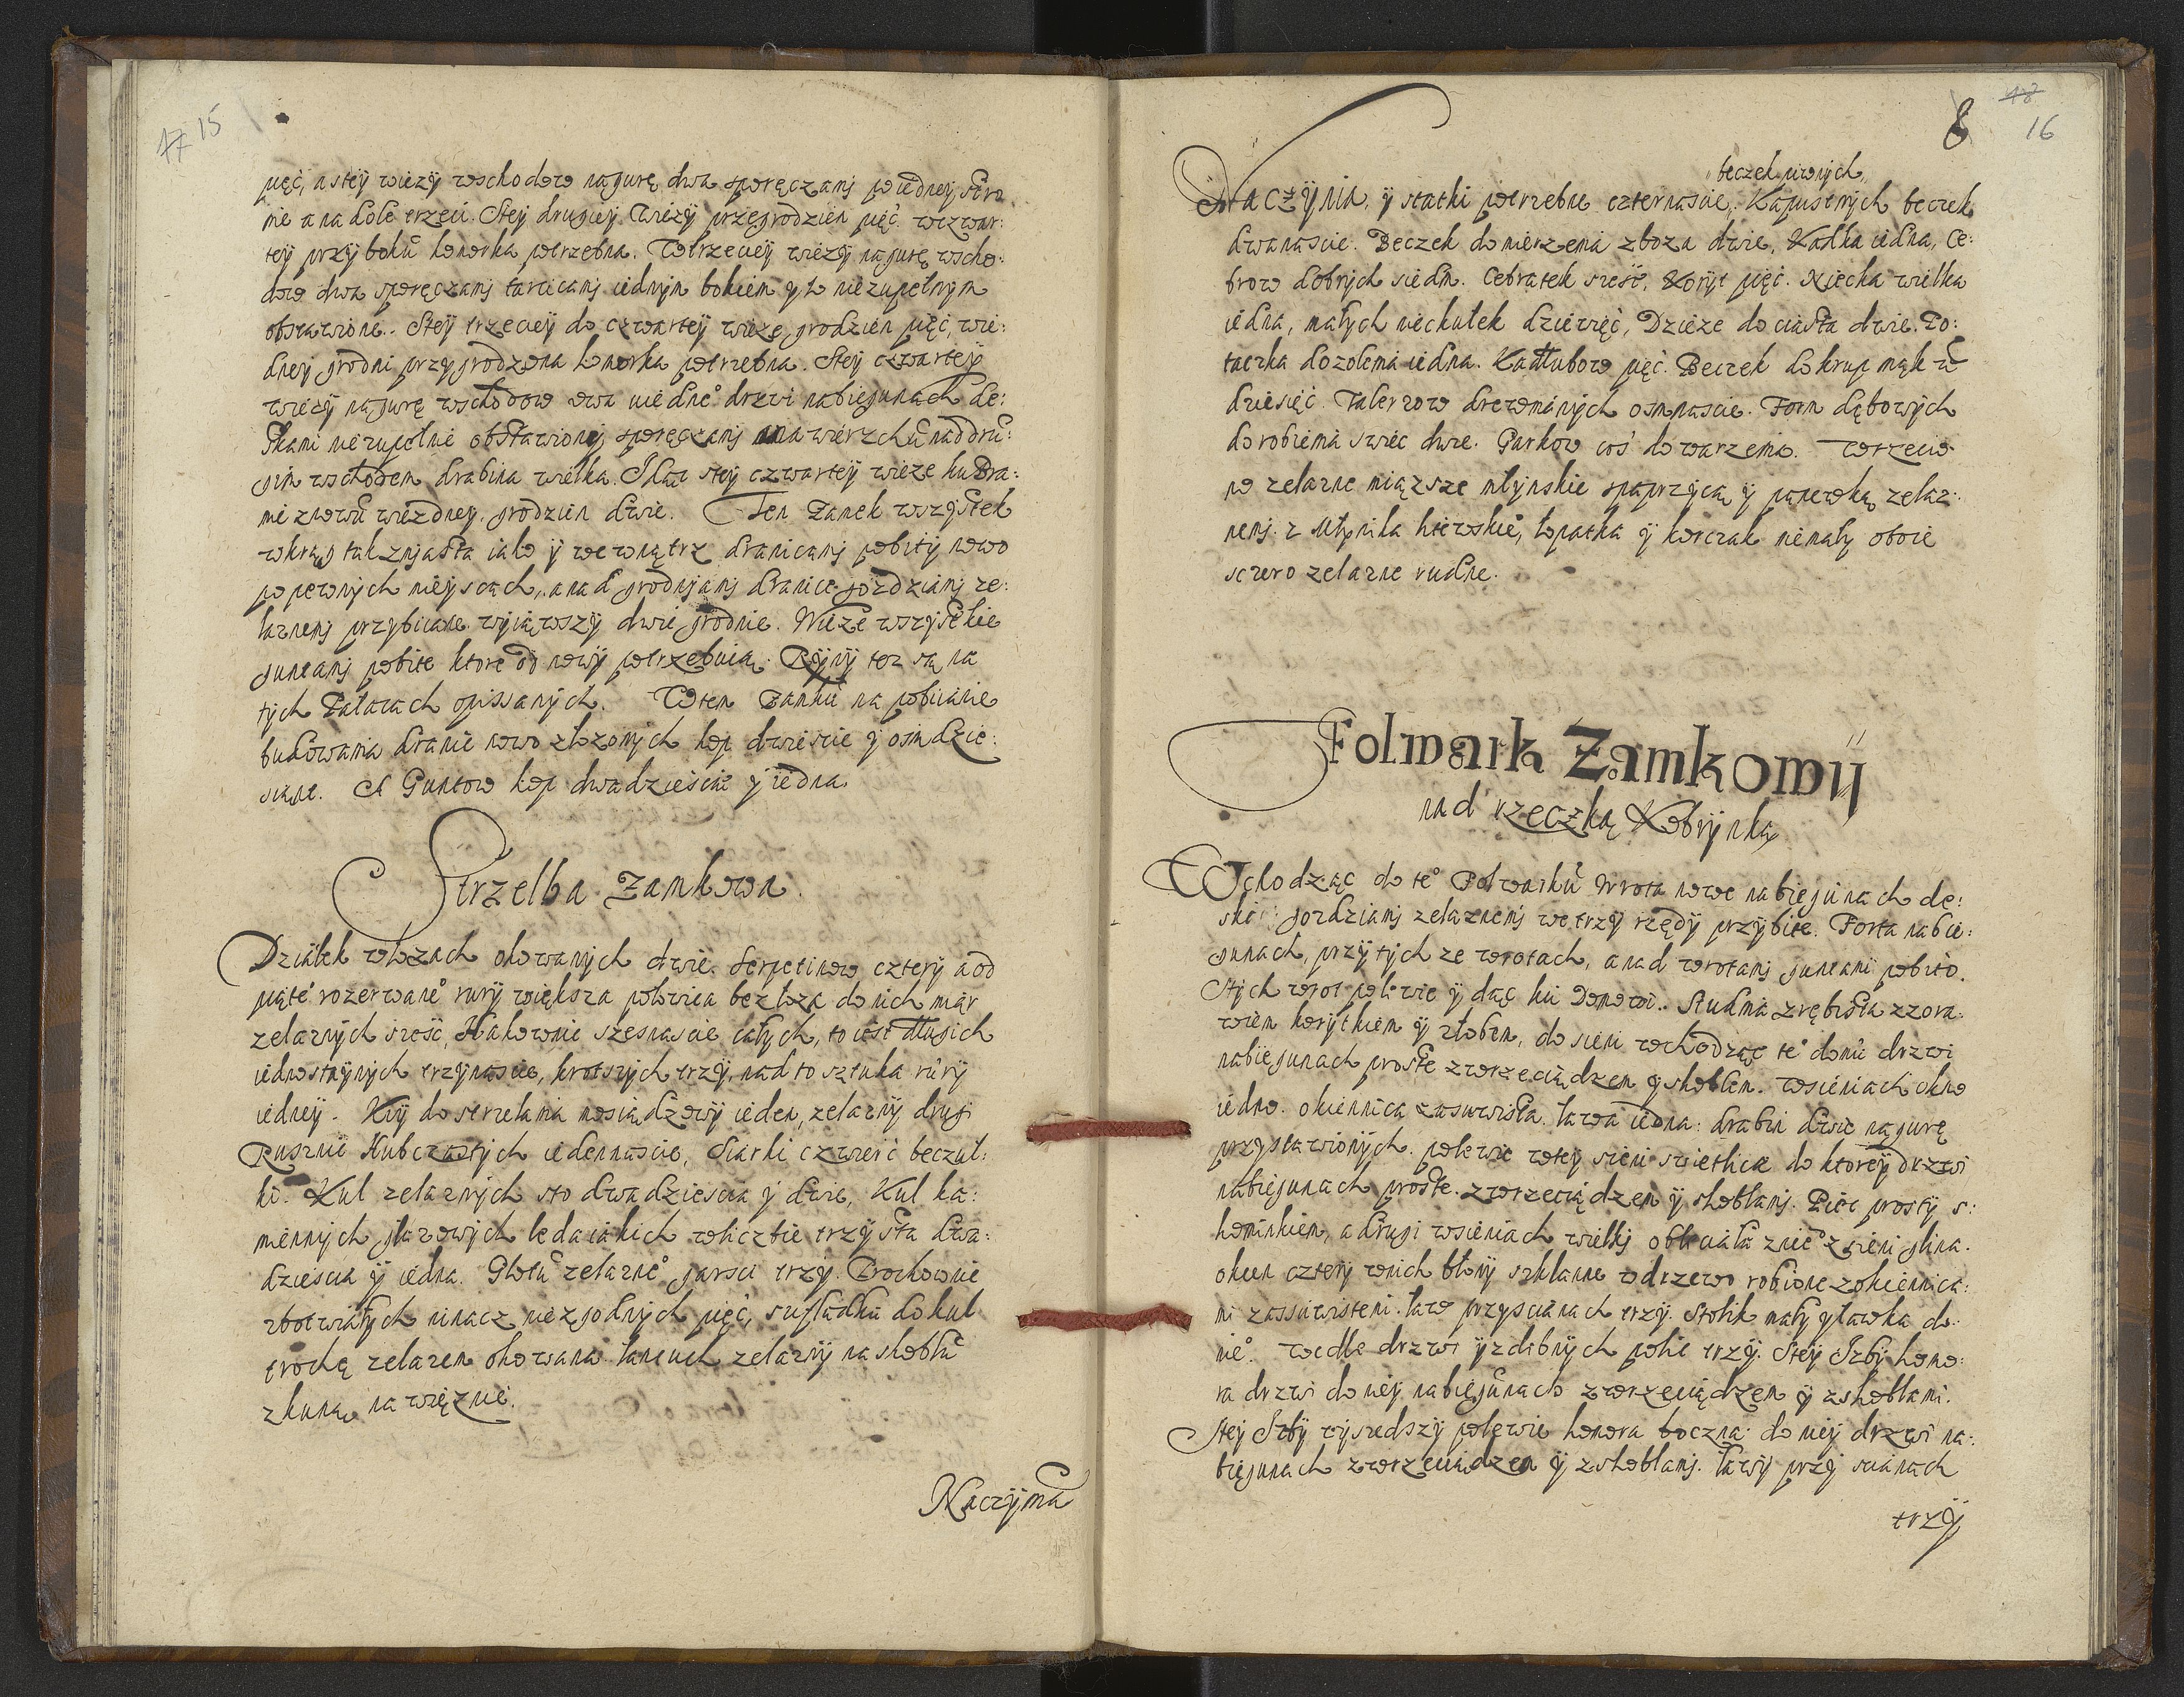 17 15
pięć, a stey wieży wschodow nagurę dwa sporęczami po iedney stro
nie a na dole trzeci. Stey drugiey Wieży przegrodzien pięć. wczwar:
tey przy boku komorka potrzebna. Wtrzeciey wieży nagurę wscho:
dow dwa sporęczami tarcicami iednym bokiem y to niezupełnym
obstawione. Stey trzeciey do czwartey wieże grodzien pięć, wie:
dney grodni przygrodzona komorka potrzebna. Stey czwartey
wieży nagurę wschodow dwa drzwi nabiegunach de:
skami niezupełnie obstawioney sporęczami na wierzchu nad dru:
gim wschodem drabina wielka. Idąc stey czwartey wieże ku Bra:
mie znowu wiezdney, grodzien dwie. Ten Zamek wszystek
wkrąg tak zmiasta iako y wewnątrz dranicami pobity nowo
po pewnych mieyscach, a nad grodniami dranice gozdziami że:
laznemi przybiiane wyiąwszy dwie grodnie. Wieże wszystkie
guntami pobite ktore od nowy potrzebuią. Rejny też są na
tych Pałacach opissanych. Wtem Zamku na pobiianie
budowania dranic nowo złożonych kop dwieście y osimdzie:
siąnt. A Guntow kop dwadzieścia y iedna.
Strzelba Zamkowa.
Działek włożach okowanych dwie. Serpetinow cztery a od
piąte° rozerwane° rury większa połowica bez łoza do nich miar
zelaznych sześć, Hakownic szesnaście całych, to iest długich
iednostaynych trzynascie, krotszych trzy, nad to sztuka rury
iedney. Kiy do strzelania mosiądzowy ieden, zelazny drugi
Rusznic Hubczastych iedennascie, Siarki czwierć beczuł:
ki. Kul zelaznych sto dwadziescia y dwie, Kul ka:
miennych głazowych ledaiakich wliczbie trzysta dwa:
dziescia y iedna. Głotu zelazne° garsci trzy. Prochownic
zbotwiałych ninacz niezgodnych pięć, szufladka do kul
trochę zelazem okowana. łancuch zelazny na skoblu
zkuną na więznie.
Naczynia
8 18 16
beczek piwnych,
Naczynia, y statki potrzebne czternascie, Kapustnych beczek
dwanascie. Beczek do mierzenia zboza dwie, Kadka iedna, Ce:
brow dobrych siedm. Cebratek sześć. Koryt pięć. Niecka wielka
iedna, małych nieckułek dziewięć, Dzieże do ciasta dwie. Po:
taczka do zolenia iedna. Kadłubow pięć. Beczek do krup mąk u
dziesięć. Talerzow drewnianych osmnascie. Form dębowych
do robienia swiec dwie. Garkow cos do warzenia. Wrzecio:
no zelazne miązsze młynskie spaprzycą y panewką zelaz:
nemi. z Młynika łopatka y korczak niemały oboie
sczero zelazne rudne.
Folwark Zamkowy
nad rzeczką Kobrynką
Wchodząc do te° Folwarku Wrota nowe nabiegunach de:
ski gozdziami zelaznemi we trzy rzędy przybite. Forta nabie:
gunach, przy tych ze wrotach, a nad wrotami guntami pobito.
Stych wrot po lewie ydąc ku Domowi. Studnia zrębista zzora:
wiem korytkiem y złobem, do sieni wchodząc te° domu drzwi
nabiegunach proste zwrzeciądzem y skoblem. wsieniach okno
iedno. okiennica zasuwista. ława iedna: drabin dwie nagurę
przystawionych. po lewie wtey sieni swietlica do ktorey drzwi
nabiegunach proste. zwrzeciądzem y skoblami. Piec prosty s:
kominkiem, a drugi wsieniach wielki zsieni glina.
okien cztery wnich błony szklanne wdrzewo robione zokiennica:
mi zassuwistemi. ław przyscianach trzy. Stolik mały yławka do
nie°. wedle drzwi yzdebnych police trzy. Stey Izby komo:
ra drzwi do niey nabiegunach zwrzeciądzem y zskoblami.
Stey Izby wyszedszy po lewie komora boczna: do niey drzwi na:
biegunach zwrzeciądzem y zskoblami. ławy przy scianach
trzy